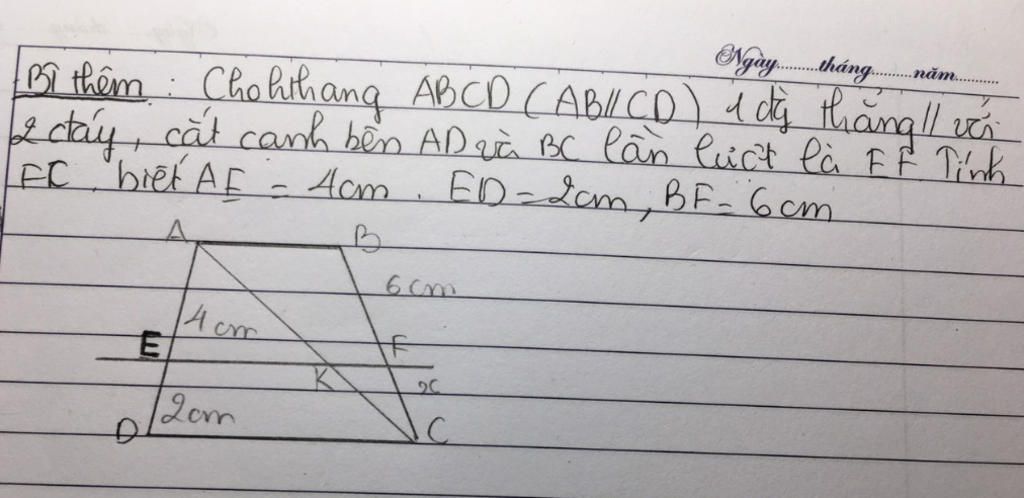 Ngày........tháng........năm..........
Bì thêm : Cho hthang ABCD (AB//CD) 1 đg thẳng // với
2 đáy, cắt cạnh bên AD và BC lần lượt là EF Tính
FC. biết AE = 4cm. ED = 2cm, BF = 6cm
A B
6cm
4cm
E F
K x
2cm
D C